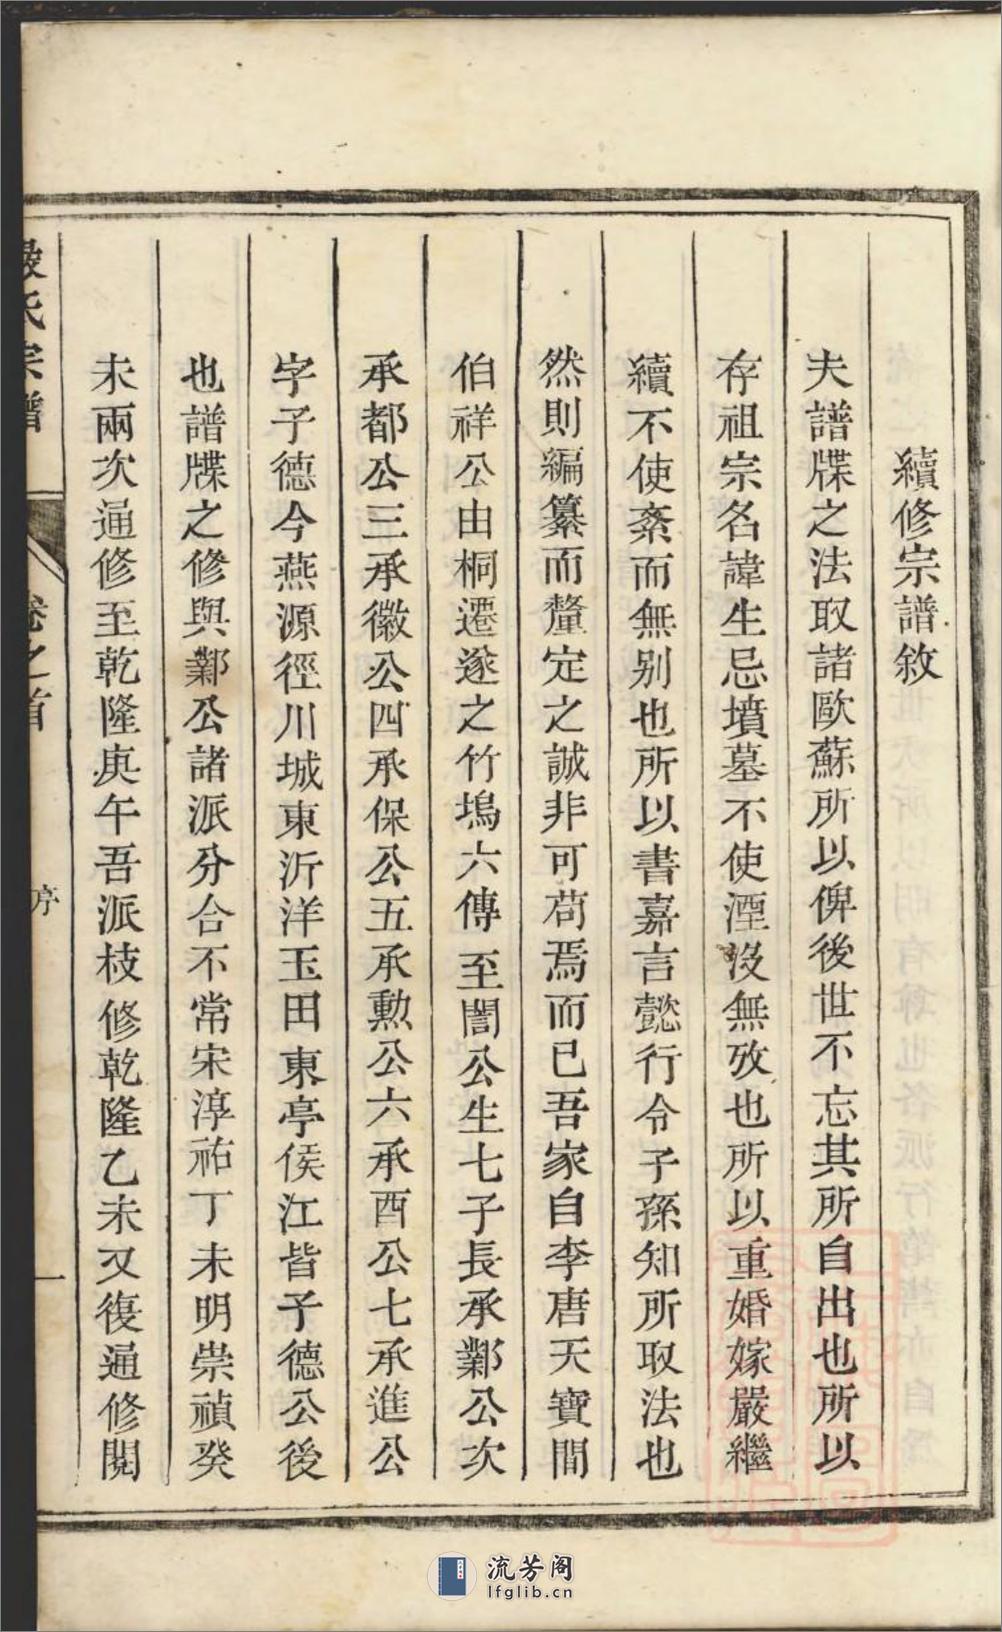 續修宗譜敘
夫譜牒之法取諸歐蘇所以俾後世不忘其所自出也所以
存祖宗名諱生忌墳墓不使湮沒無攷也所以重婚嫁嚴繼
續不使紊而無别也所以書嘉言懿行令子孫知所取法也
然則編纂而釐定之誠非可苟焉而已吾家自李唐天寶間
伯祥公由桐遷遂之竹塢六傳至誾公生七子長承鄴公次
承都公三承徽公四承保公五承勲公六承酉公七承進公
字子德今燕源徑川城東沂洋玉田東亭侯江皆子德公後
也譜牒之修與鄴公諸派分合不常宋淳祐丁未明崇禎癸
未兩次通修至乾隆庚午吾派枝修乾隆乙未又復通修閱
氏宗譜
卷之首
序
一
流芳阁
lfglib.cn